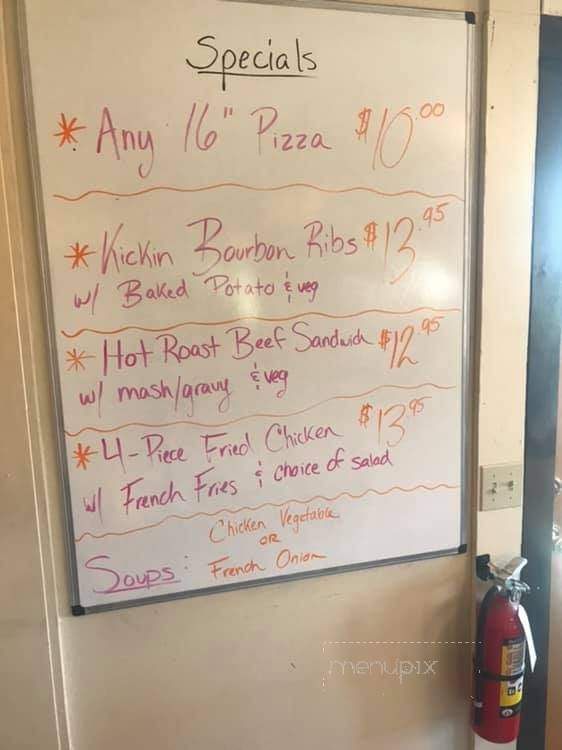 Specials
* Any 16" Pizza $10.00
* Kickin Bourbon Ribs $13.95
w/ Baked Potato & veg
* Hot Roast Beef Sandwich $12.95
w/ mash/gravy & veg
* 4-Piece Fried Chicken $13.95
w/ French Fries & choice of salad
Chicken Vegetable
OR
Soups: French Onion
menupix